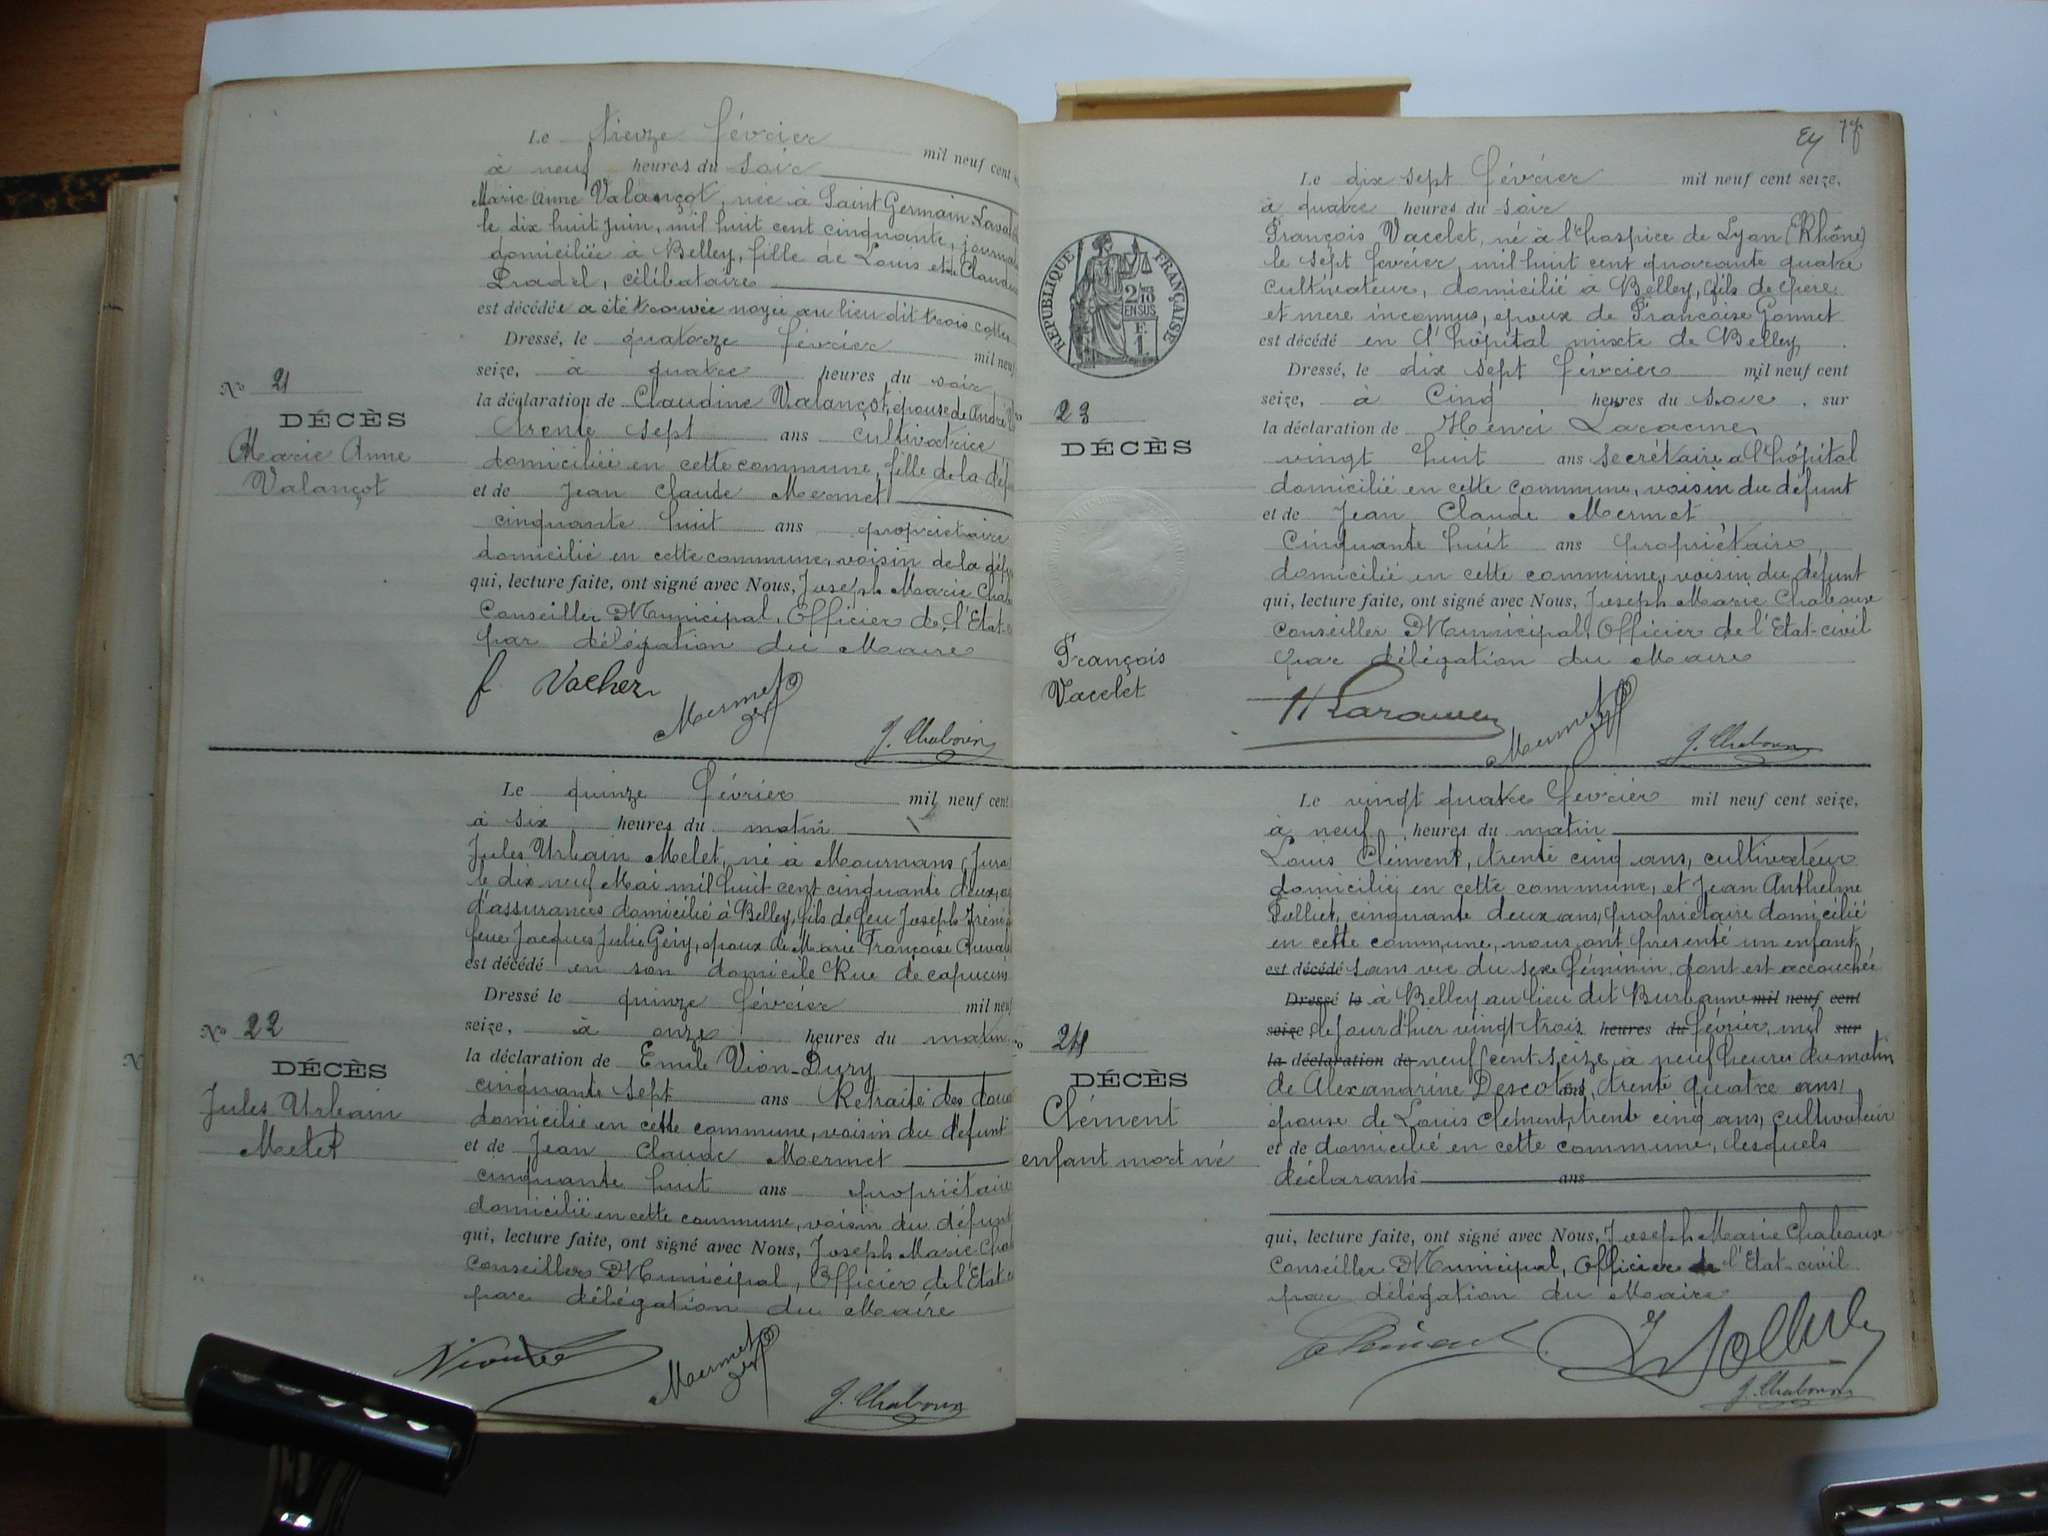 Le treize février mil neuf cent
à neuf heures du soir
Marie Anne Valançot, née à Saint Germain
le dix huit Juin, mil huit cent cinquante,
domiciliée à Belley, fille de Louis et de
Pradel, célibataire
est décédée a été trouvée noyée au lieu dit trois
Dressé, le quatorze février mil neuf
seize, à quatre heures du soir
la déclaration de Claudine Valançot, épouse de André
trente sept ans cultivatrice
domiciliée en cette commune, fille de la
et de Jean Claude Mermet
cinquante huit ans propriétaire
domicilié en cette commune, voisin de la
qui, lecture faite, ont signé avec Nous, Joseph Marie
Conseiller Municipal, Officier de l'Etat
par délégation du Maire
Nº 21
DÉCÈS
Marie Anne
Valançot
f. Vacher
Mermet
J. Chaboux
Le quinze février mil neuf cent
à six heures du matin
Jules Urbain Melet, né à Mournans (Jura
le dix neuf Mai mil huit cent cinquante deux,
d'assurances domicilié à Belley, fils de feu Joseph
feue Jacques Julie Gény, époux de Marie Françoise
est décédé en son domicile Rue de capucins
Dressé le quinze février mil neuf
seize, à onze heures du matin
la déclaration de Emile Vion-Dury
cinquante sept ans Retraité des
domicilié en cette commune, voisin du défunt
et de Jean Claude Mermet
cinquante huit ans propriétaire
domicilié en cette commune, voisin du défunt
qui, lecture faite, ont signé avec Nous, Joseph Marie
Conseiller Municipal, Officier de l'Etat
par délégation du Maire
Nº 22
DÉCÈS
Jules Urbain
Melet
Mermet
J. Chaboux
Le dix sept février mil neuf cent seize,
à quatre heures du soir
François Vacelet, né à l'hospice de Lyon (Rhône)
le sept fevrier, mil huit cent quarante quatre
cultivateur, domicilié à Belley, fils de père
et mere inconnus, epoux de Francoise Gonnet
est décédé en l'hôpital mixte de Belley
Dressé, le dix sept février mil neuf cent
seize, à Cinq heures du soir, sur
la déclaration de Henri Laracine
vingt huit ans secrétaire à l'hôpital
domicilié en cette commune, voisin du défunt
et de Jean Claude Mermet
Cinquante huit ans propriétaire
domicilié en cette commune, voisin du défunt
qui, lecture faite, ont signé avec Nous, Joseph Marie Chaboux
conseiller Municipal, Officier de l'Etat-civil
par délégation du Maire
RÉPUBLIQUE FRANÇAISE
2/10
EN SUS
23
DÉCÈS
François
Vacelet
Mermet
J. Chaboux
Le vingt quatre février mil neuf cent seize,
à neuf heures du matin
Louis Clément, trente cinq ans, cultivateur
domicilié en cette commune, et Jean Anthelme
Tolliet, cinquante deux ans, propriétaire domicilié
en cette commune, nous ont présenté un enfant
est décédé sans vie du sexe féminin dont est accouchée
Dressé le à Belley au lieu dit Burbanne mil neuf cent
seize, le jour d'hier vingt trois heures du février, mil sur
la déclaration de neuf cent seize à neuf heures du matin
de Alexandrine Descotes, trente quatre ans,
épouse de Louis Clément, trente cinq ans, cultivateur
et de domicilié en cette commune, lesquels
déclarants ans
qui, lecture faite, ont signé avec Nous, Joseph Marie Chaboux
Conseiller Municipal, Officier de l'Etat-civil
par délégation du Maire
24
DÉCÈS
Clément
enfant mort né
Clément
J. Chaboux